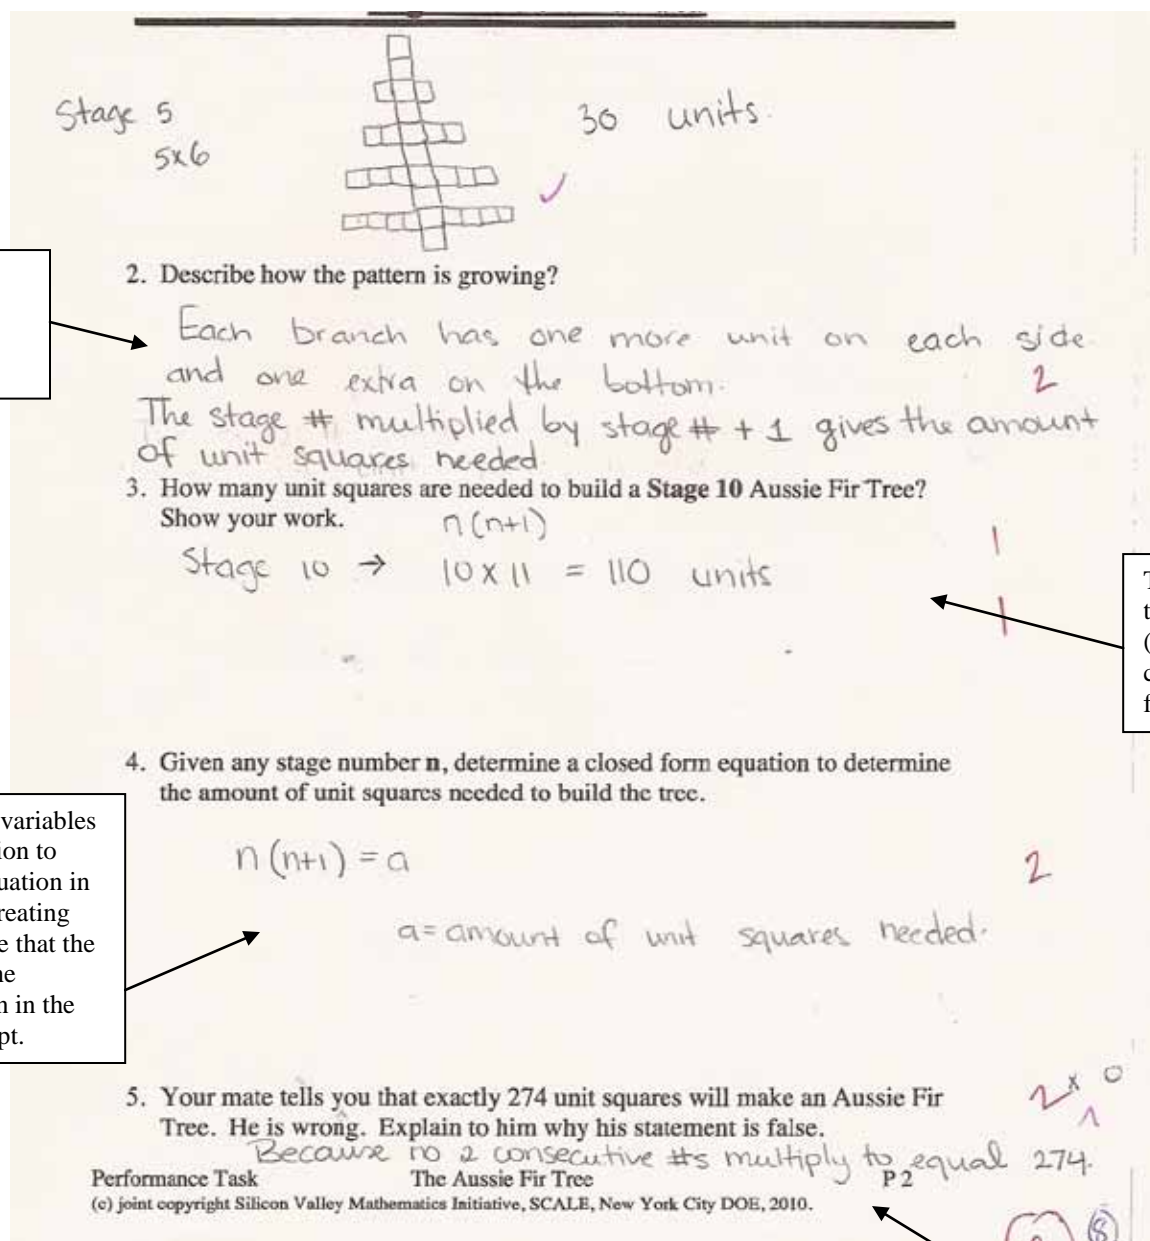 Stage 5
5x6
30 units.
2. Describe how the pattern is growing?
Each branch has one more unit on each side
and one extra on the bottom.
2
The stage # multiplied by stage # + 1 gives the amount
of unit squares needed.
3. How many unit squares are needed to build a Stage 10 Aussie Fir Tree?
Show your work.
n(n+1)
1
Stage 10 → 10 x 11 = 110 units
1
4. Given any stage number n, determine a closed form equation to determine
the amount of unit squares needed to build the tree.
variables
uation in
reating
e that the
n in the
n(n+1) = a
2
a = amount of unit squares needed.
5. Your mate tells you that exactly 274 unit squares will make an Aussie Fir
2 x 0
1
Tree. He is wrong. Explain to him why his statement is false.
Because no 2 consecutive #s multiply to equal 274.
Performance Task The Aussie Fir Tree P 2
(c) joint copyright Silicon Valley Mathematics Initiative, SCALE, New York City DOE, 2010.
8